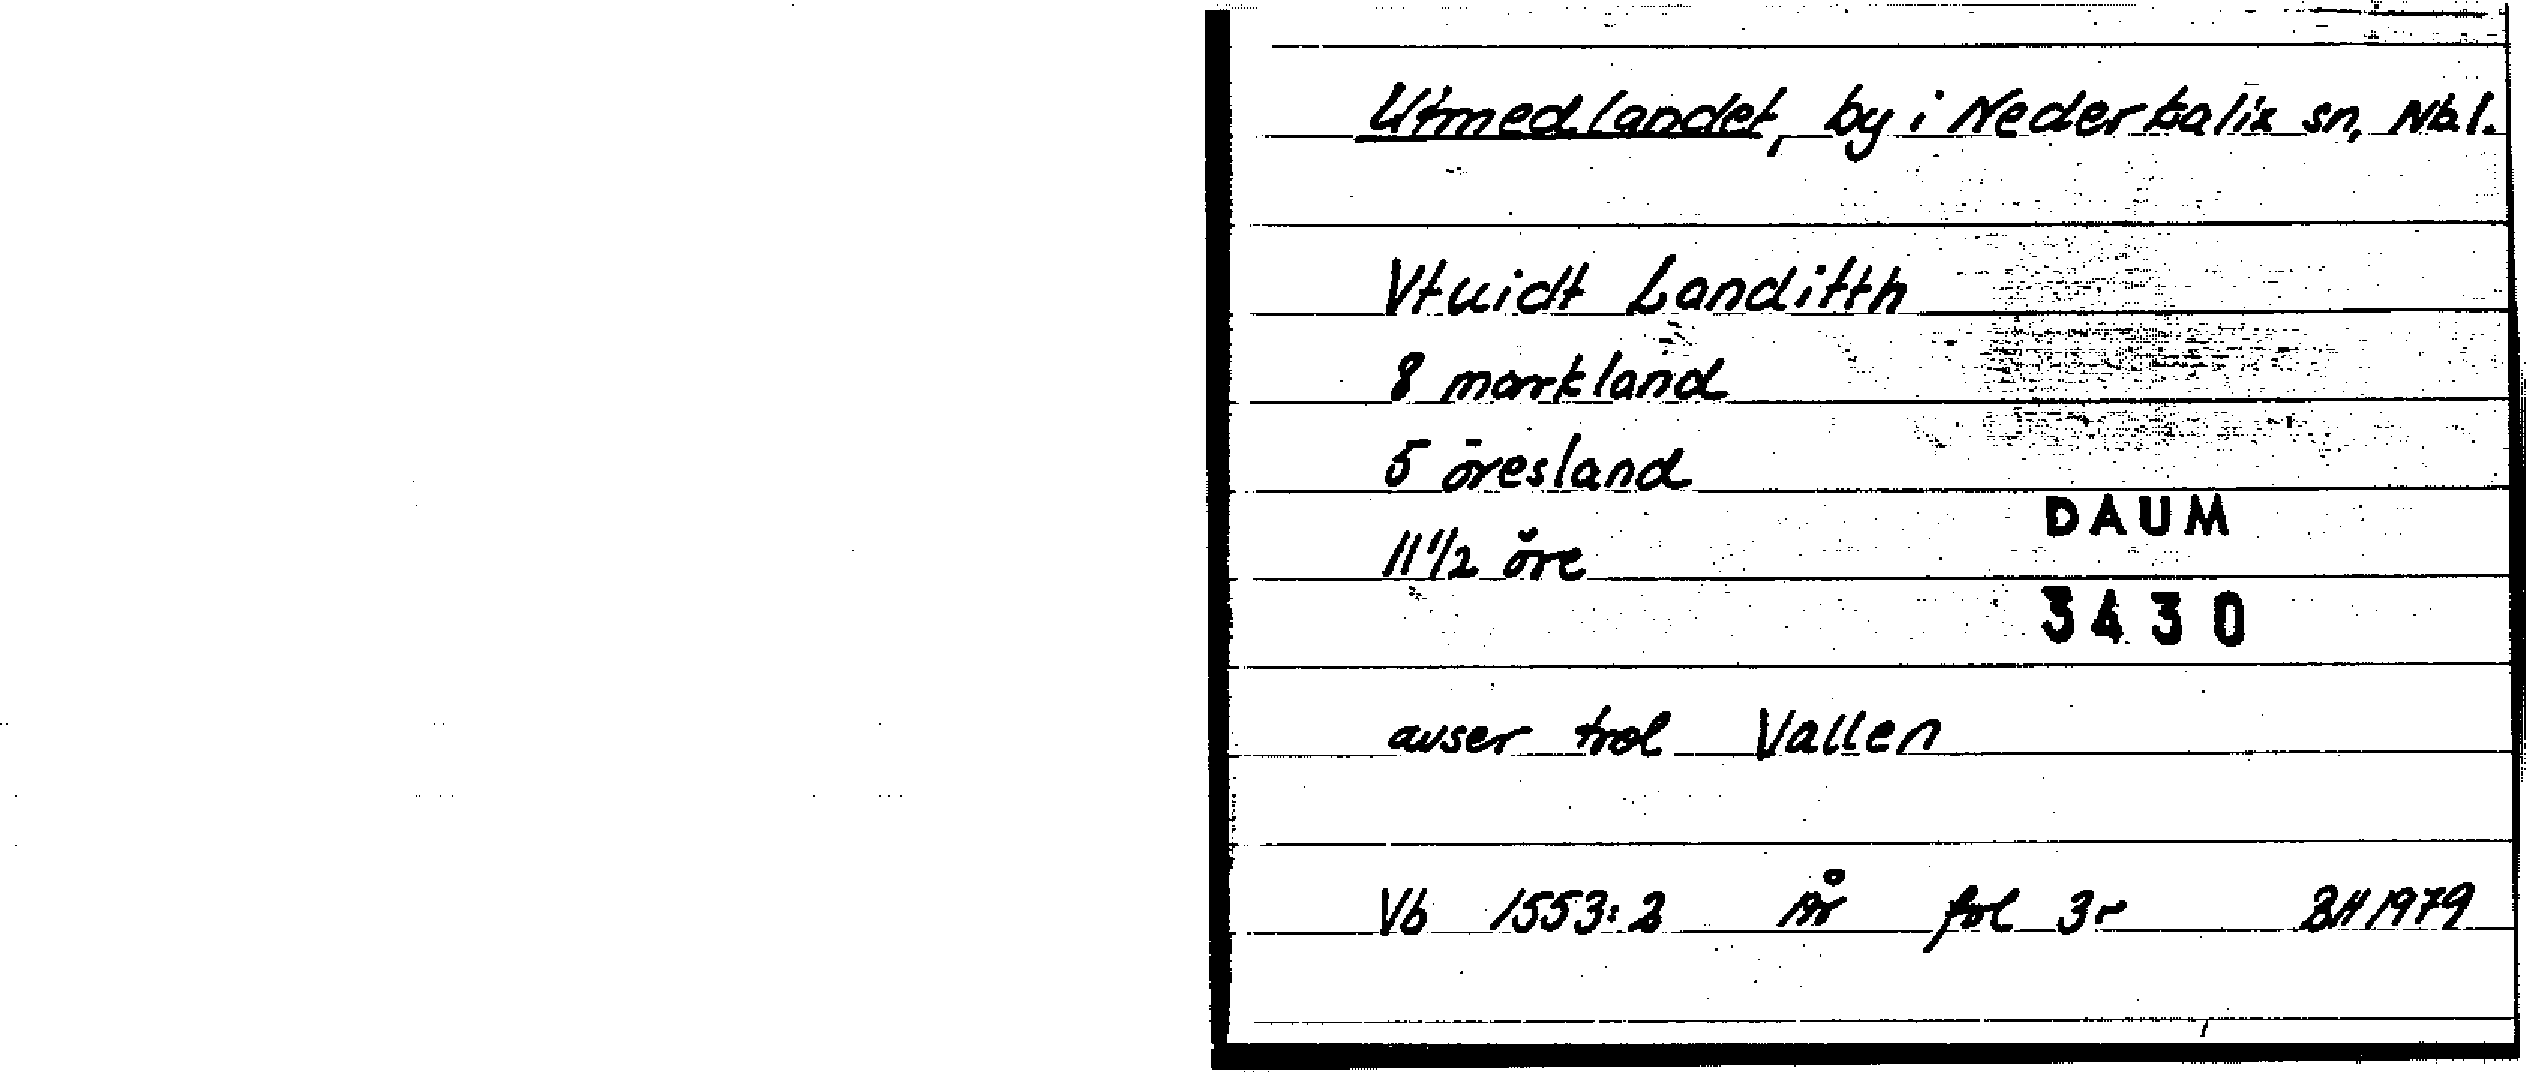 Utmedlandet, by i Nederkalix sn, Nbl.
Vtuidt Landitth
8 markland
5 öresland
11 1/2 öre
DAUM
3430
avser trol Vallen
Vb 1553:2 År fol 3r BH 1979